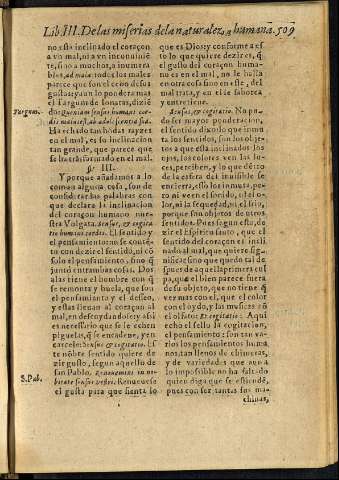 Lib. III. De las miserias de la naturalez. humana. 509
no està inclinado el coraçon
a vn mal, ni a vn inconuiniẽ
te, sino a muchos, a innumera
bles, ad mala: todos los males
parece que son el cẽtro de sus
gustos; y aun lo ponderò mas
el Targum de Ionatas, diziẽ
do: Quoniam sensus humani cor
Targum.
dis
ab adolescentia sua. Ha
hechado tan hondas rayzes
en el mal, es su inclinacion
tan grande, que parece que
se ha trãsformado en el mal.
§. III.
Y porque añadamos a lo
comun alguna cosa, son de
considerar las palabras con
que declara la inclinacion
del coraçon humano nue
stra Vulgata. Sensus, & cogita
tio humani cordis. El sentido y
el pensamiento: no se contẽ
tò con dezir el sentido, ni cõ
solo el pensamiento, sino q̃
juntò entrambas cosas. Dos
alas tiene el hombre con q̃
se remonta y buela, que son
el pensamiento y el desseo,
y estas lleuan al coraçon al
mal, en desseydandose; y assi
es necessario que se le echen
piguelas, q̃ se encadene, y en
carcele: Sensus & cogitatio. Es
te nõbre sentido quiere de
zir gusto, segun aquello de
san Pablo, Renouamini in no-
S. Pab.
uitate sensus vestri. Renueuese
el gusto para que sienta lo
que es Dios; y conforme a es
to lo que quiere dezir es, q̃
el gusto del coraçon huma
no es en el mal, no le halla
en otra cosa sino en el, del
mal trata, y en el se saborea
y entretiene.
Sensus, & cogitatio. No pu
do ser mayor ponderacion,
el sentido dize solo lo que in
muta los sentidos, lo que es
objeto dellos, lo que les to
ca: los ojos son inclinados a
los colores ven las lu-
zes, perciben, y lo que dẽtro
de la esfera del inuisible se
encierra, esso los inmuta, pe-
ro ni veen el sonido, ni el olo
or, ni la sequedad, ni el frio,
porque son objetos de otros
sentidos. Pues segun esto, de
zir el Espiritu santo, que el
sentido del coraçon es incli
nado al mal, que quiere sig-
nificar sino que quedò tal de
spues de aquella primera cul
pa, que a biẽ parece que fuera
de su objeto, que no tiene q̃
ver mas con el, que el color
con el oydo, y las musicas cõ
el olfato: Et cogitatio. Aqui
echò el sello la cogitacion,
el pensamiento: son tan va-
rios los pensamientos huma
nos, tan llenos de chimeras,
y de variedades que aun a
lo impossible no ha faltado
quien diga que se estiendẽ,
pues con ser tantas sus ma-
chinas,